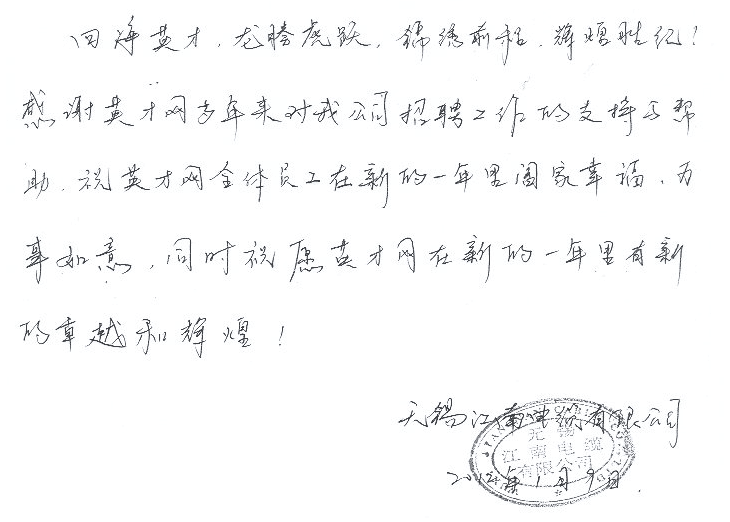 四海英才，龙腾虎跃，锦绣前程，辉煌胜纪！
感谢英才网多年来对我公司招聘工作的支持与帮
助．祝英才网全体员工在新的一年里阖家幸福、万
事如意，同时祝愿英才网在新的一年里有新
的卓越和辉煌！
无锡江南电缆有限公司
无锡
江南电缆
有限公司
年1月9日